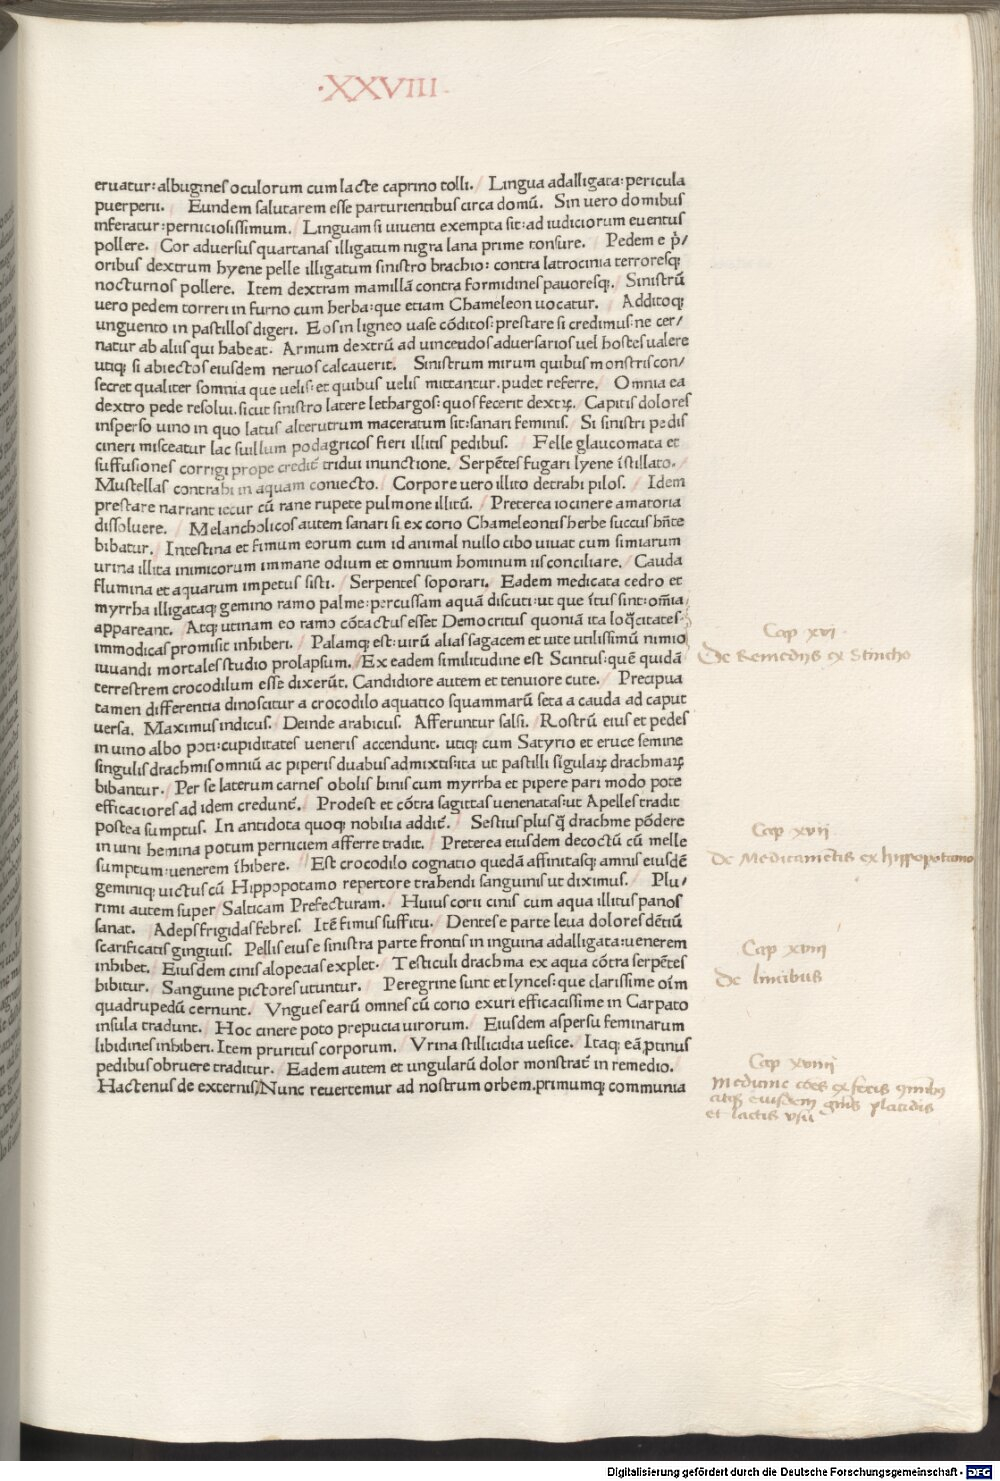 ·XXVIII·
eruatur: albugines oculorum cum lacte caprino tolli. Lingua adalligata: pericula
puerperii. Eundem salutarem esse parturientibus circa domū. Sin uero domibus
inferatur: perniciosissimum. Linguam si uiuenti exempta sit: ad iudiciorum euentus
pollere. Cor aduersus quartanas illigatum nigra lana prime tonsure. Pedem e p̄/
oribus dextrum hyene pelle illigatum sinistro brachio: contra latrocinia terroresqꝫ
nocturnos pollere. Item dextram mamillā contra formidines pauoresqꝫ. Sinistrū
uero pedem torreri in furno cum herba: que etiam Chameleon uocatur. Additoqꝫ
unguento in pastillos digeri. Eos in ligneo uase cōditos: prestare si credimus: ne cer/
natur ab aliis qui habeat. Armum dextrū ad uincendos aduersarios uel hostes ualere
utiqꝫ si abiectos eiusdem neruos calcauerit. Sinistrum mirum quibus monstris con/
secret qualiter somnia que uelis: et quibus uelis mittantur. pudet referre. Omnia ea
dextro pede resolui. sicut sinistro latere lethargos: quos fecerit dextrꝝ. Capitis dolores
insperso uino in quo latus alterutrum maceratum sit: sanari feminis. Si sinistri pedis
cineri misceatur lac suillum podagricos fieri illitis pedibus. Felle glaucomata et
suffusiones corrigi prope creditͥ tridui inunctione. Serpētes fugari lyene īstillato.
Mustellas contrahi in aquam coniecto. Corpore uero illito detrahi pilos. Idem
prestare narrant iecur cū rane rupete pulmone illitū. Preterea iocinere amatoria
dissoluere. Melancholicos autem sanari si ex corio Chameleontis herbe succus hn̄te
bibatur. Intestina et fimum eorum cum id animal nullo cibo uiuat cum simiarum
urina illita inimicorum immane odium et omnium hominum iis conciliare. Cauda
flumina et aquarum impetus sisti. Serpentes soporari. Eadem medicata cedro et
myrrha illigataqꝫ gemino ramo palme: percussam aquā discuti: ut que ītus sint: om̄ia
appareant. Atqꝫ utinam eo ramo cōtactus esset Democritus quoniā ita loq̄citates
immodicas promisit inhiberi. Palamqꝫ est: uirū alias sagacem et uite utilissimū nimio
iuuandi mortales studio prolapsum. Ex eadem similitudine est Scintus: quē quidā
terrestrem crocodilum esse dixerūt. Candidiore autem et tenuiore cute. Precipua
tamen differentia dinoscitur a crocodilo aquatico squammarū seta a cauda ad caput
uersa. Maximus indicus. Deinde arabicus. Afferuntur salsi. Rostrū eius et pedes
in uino albo poti: cupiditates ueneris accendunt. utiqꝫ cum Satyrio et eruce semine
singulis drachmis omniū ac piperis duabus admixtis: ita ut pastilli sigularꝝ drachmarꝝ
bibantur. Per se laterum carnes obolis binis cum myrrha et pipere pari modo pote
efficaciores ad idem credunt̄. Prodest et cōtra sagittas uenenatas: ut Apelles tradit
postea sumptus. In antidota quoqꝫ nobilia addit̄. Sestius plus q̄ drachme pōdere
in uini hemina potum perniciem afferre tradit. Preterea eiusdem decoctū cū melle
sumptum: uenerem īhibere. Est crocodilo cognatio quedā affinitasqꝫ amnis eiusdē
geminiqꝫ uictus cū Hippopotamo repertore trahendi sanguinis ut diximus. Plu/
rimi autem super Salticam Prefecturam. Huius corii cinis cum aqua illitus panos
sanat. Adeps frigidas febres. Itē fimus suffitu. Dentes e parte leua dolores dētiū
scarificatis gingiuis. Pellis eius e sinistra parte frontis in inguina adalligata: uenerem
inhibet. Eiusdem cinis alopecias explet. Testiculi drachma ex aqua cōtra serpētes
bibitur. Sanguine pictores utuntur. Peregrine sunt et lynces: que clarissime oīm
quadrupedū cernunt. Vngues earū omnes cū corio exuri efficacissime in Carpato
insula tradunt. Hoc cinere poto prepucia uirorum. Eiusdem aspersu feminarum
libidines inhiberi. Item pruritus corporum. Vrina stillicidia uesice. Itaqꝫ eā ꝓtinus
pedibus obruere traditur. Eadem autem et iugularū dolor monstrat̄ in remedio.
Hactenus de externis. Nunc reuertemur ad nostrum orbem. primumqꝫ communia
Cap xvi
De Remedijs ex Stincho
Cap xvij
De Medicamētis ex hippopotamo
Cap xviij
De lincibus
Cap xviiij
Medicine cōes ex feris
atqꝫ eiusdem gn̄is placidis
et lactis vsu